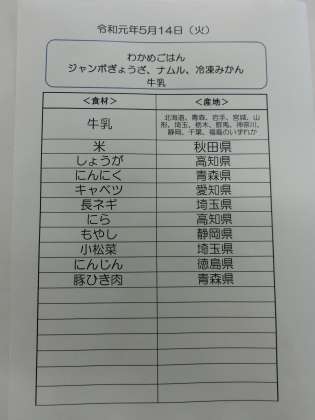 令和元年5月14日（火）
わかめごはん
ジャンボぎょうざ、ナムル、冷凍みかん
牛乳
＜食材＞ ＜産地＞
牛乳 北海道、青森、岩手、宮城、山
形、埼玉、栃木、群馬、神奈川、
静岡、千葉、福島のいずれか
米 秋田県
しょうが 高知県
にんにく 青森県
キャベツ 愛知県
長ネギ 埼玉県
にら 高知県
もやし 静岡県
小松菜 埼玉県
にんじん 徳島県
豚ひき肉 青森県